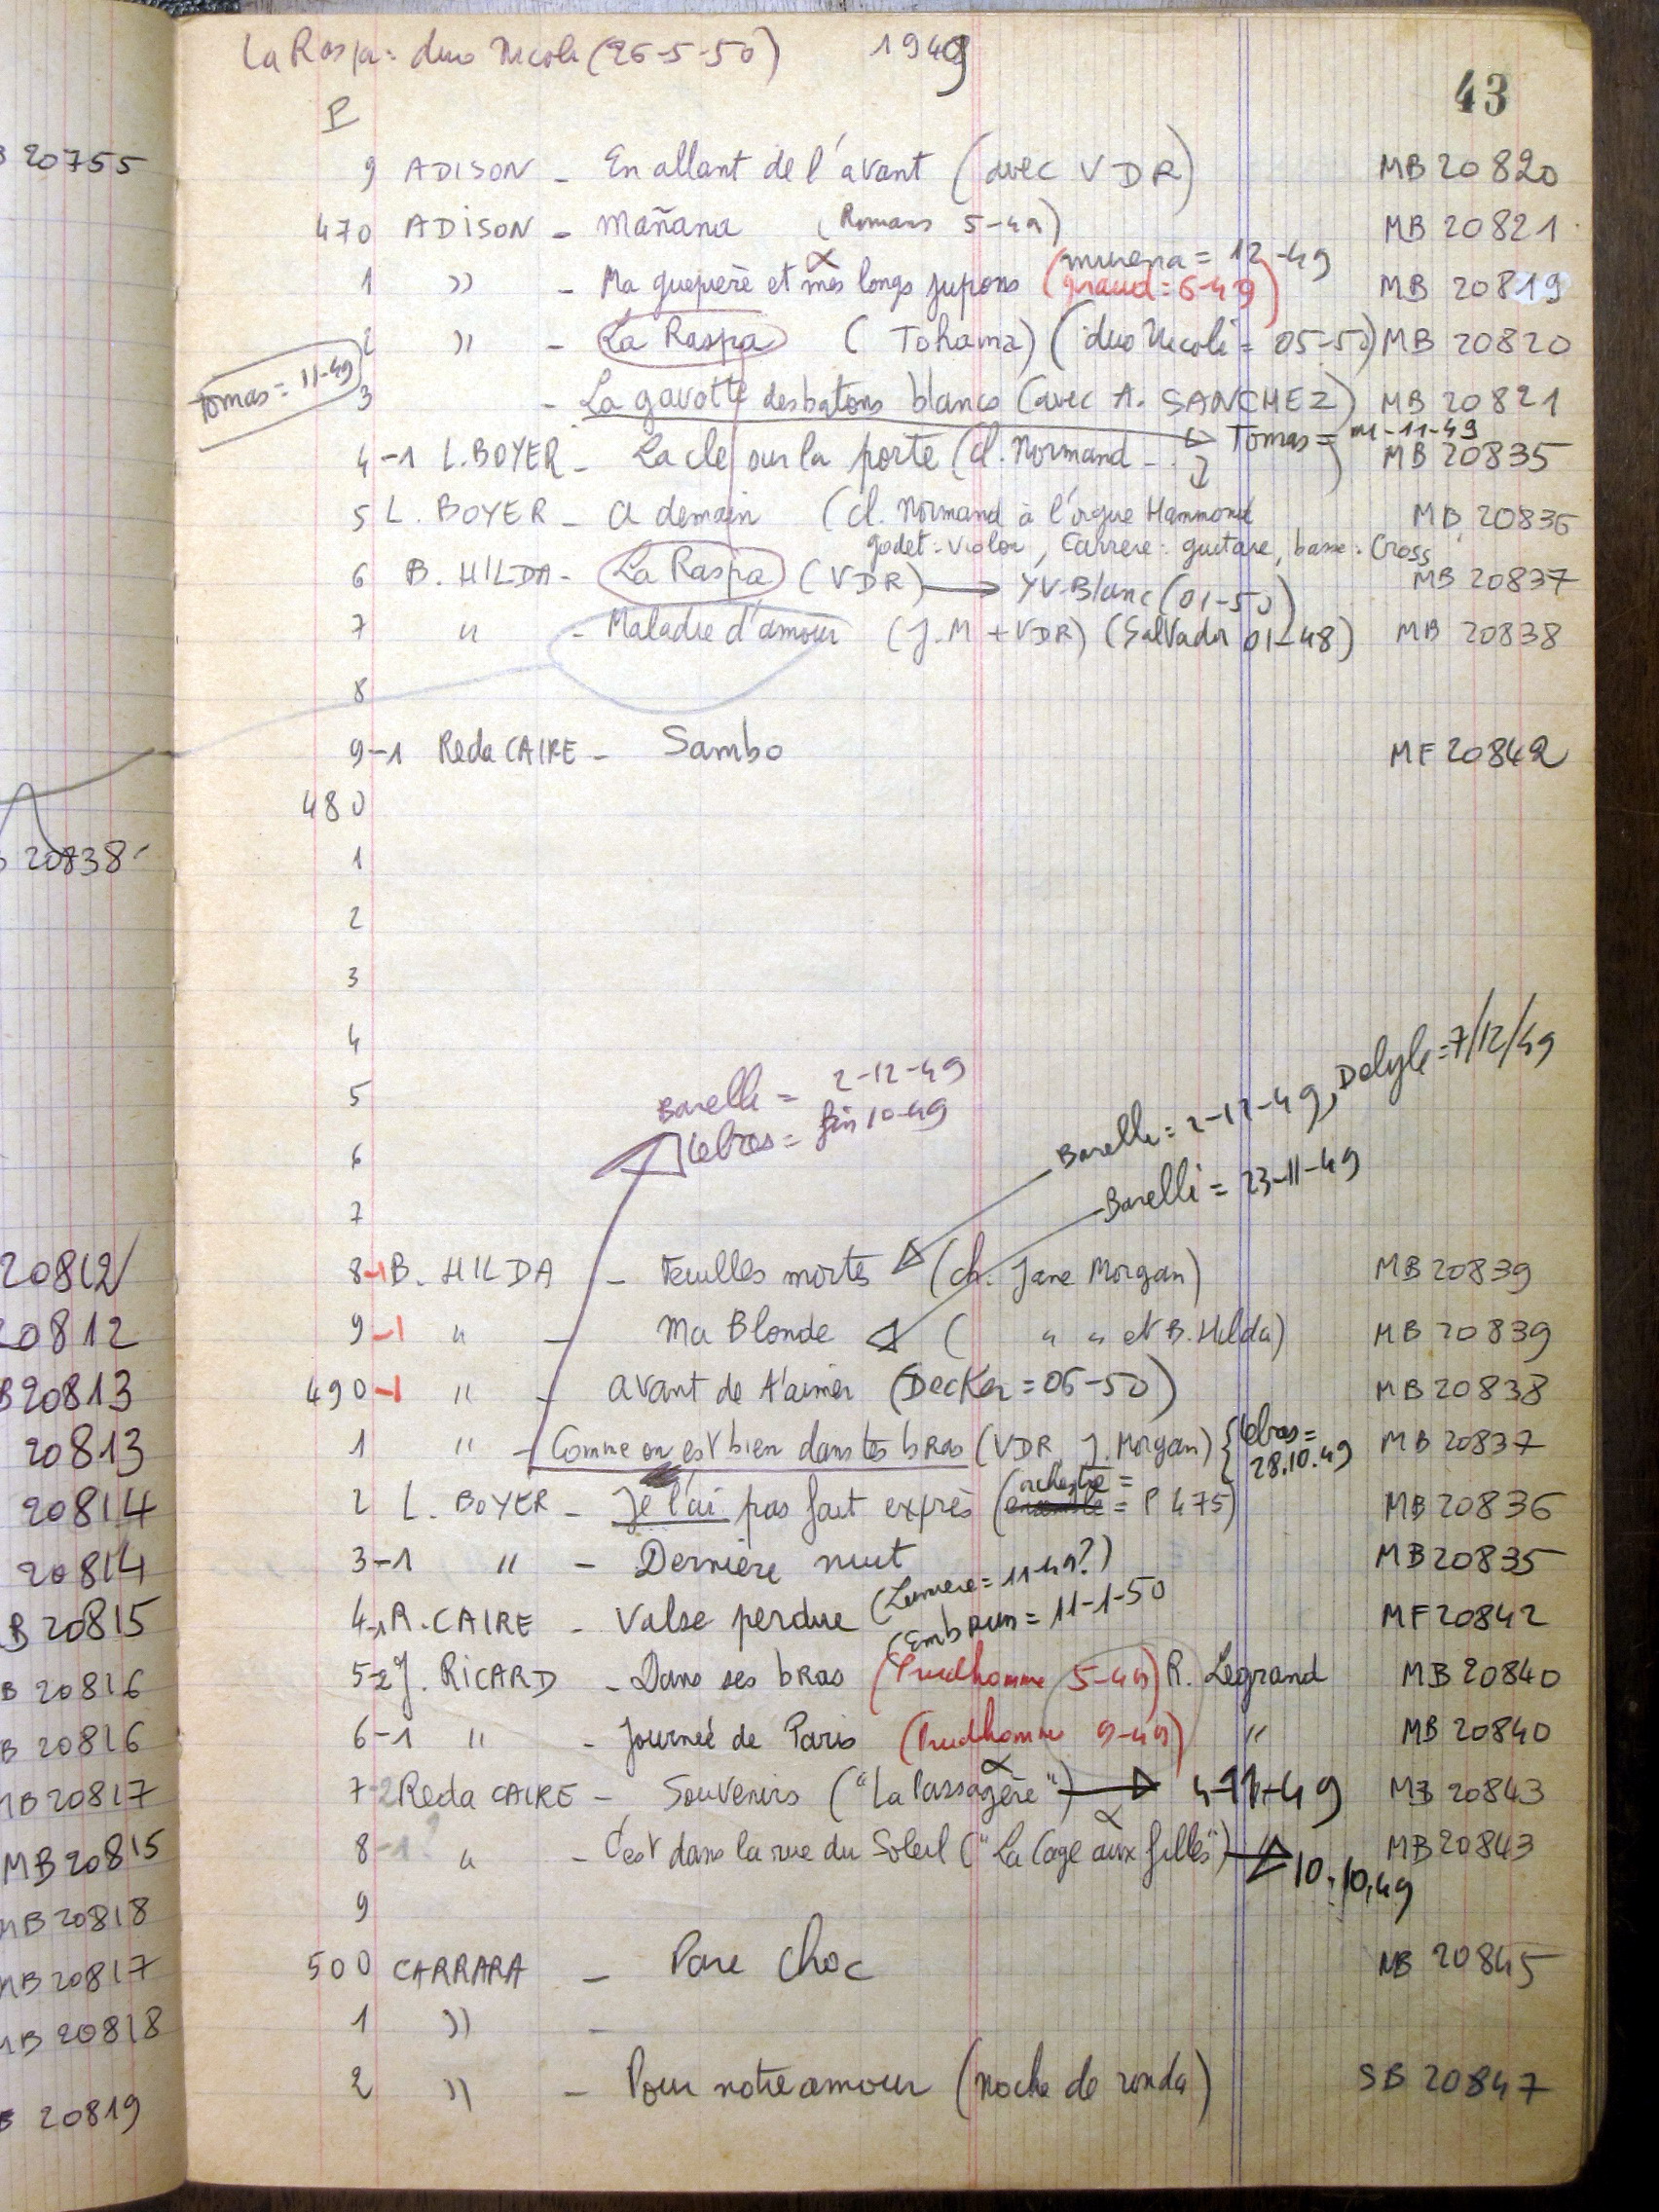 La Raspa = duo Nicoli (26-5-50) 1949
43
P
9 ADISON - En allant de l'avant (avec VDR) MB 20820
470 ADISON - Mañana (Romans 5-49) MB 20821
(murena = 12-49
1 " - Ma guepière et mes longs jupons (Giraud = 6-49) MB 20819
2 " - La Raspa (Tohama) (duo Nicoli = 05-50) MB 20820
Tomas = 11-49
3 - La gavotte des batons blancs (avec A. SANCHEZ) MB 20821
Tomas = 11-49
4-1 L. BOYER - La cle sur la porte (cl. Normand - - ) MB 20835
5 L. BOYER - A demain (cl. Normand à l'orgue Hammond MB 20836
godet = violon, Carrere : guitare, basse : Cross
6 B. HILDA - La Raspa (VDR) → YV-Blanc (01-50) MB 20837
7 " - Maladie d'amour (J.M + VDR) (Salvador 01-48) MB 20838
8
9-1 Reda CAIRE - Sambo MF 20842
480
1
2
3
4
5
6
7
Barelli = 2-12-49
Lebras = fin 10-49
Barelli = 2-12-49, Delyle = 7/12/49
Barelli = 23-11-49
8-1 B. HILDA - Feuilles mortes (ch. Jane Morgan) MB 20839
9-1 " - Ma Blonde ( " " et B. Hilda) MB 20839
490-1 " - Avant de t'aimer (Decker = 06-50) MB 20838
1 " - Comme on est bien dans tes bras (VDR, J. Morgan) { Lebras = 28.10.49 MB 20837
orchestre =
2 L. BOYER - Je l'ai pas fait exprès (ensemble = P 475) MB 20836
3-1 " - Dernière nuit MB 20835
(Lumiere = 11-49?)
4-1 R. CAIRE - Valse perdue MF 20842
(Embrun = 11-1-50
5-2 J. RICARD - Dans ses bras (Prudhomme 5-49) R. Legrand MB 20840
6-1 " - Journée de Paris (Prudhomme 9-49) " MB 20840
7-2 Reda CAIRE - Souvenirs ("La Passagère") → 4-11-49 MB 20843
8-1? " - C'est dans la rue du Soleil ("La Cage aux filles") → 10.10.49 MB 20843
9
500 CARRARA - Pare choc MB 20845
1 " -
2 " - Pour notre amour (noche de ronda) SB 20847
B 20755
20838
20812
20812
B 20813
20813
20814
20814
B 20815
B 20816
B 20816
MB 20817
MB 20815
MB 20818
MB 20817
MB 20818
B 20819